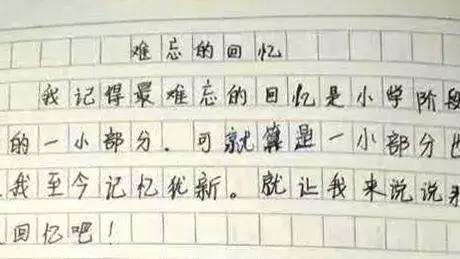 难忘的回忆
我记得最难忘的回忆是小学阶段
的一小部分．可就算是一小部分也
我至今记忆犹新。就让我来说说
回忆吧！